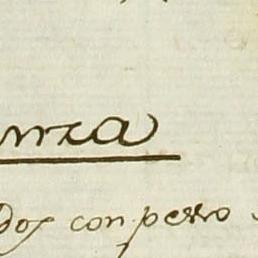 nza
dos con perro